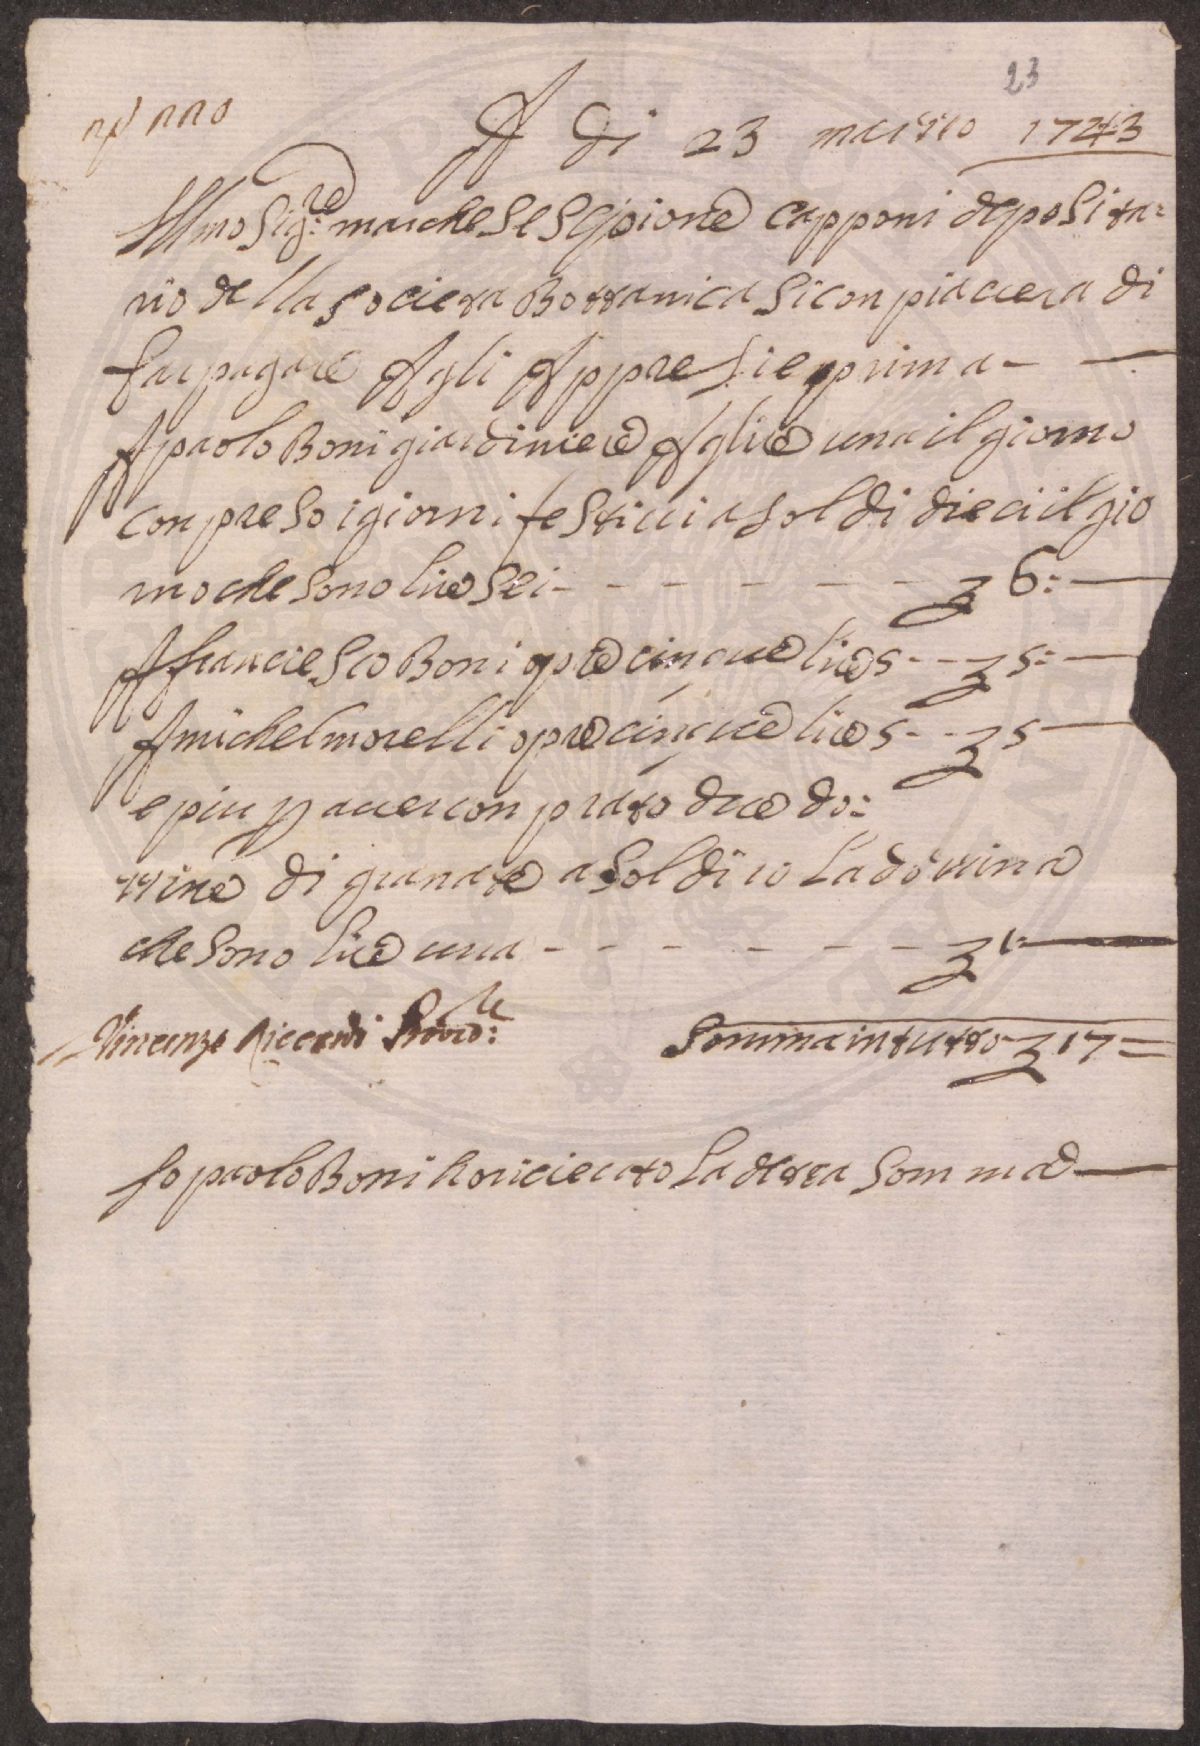 23
A di 23 marzo 1743
Ill.mo Sig.re marchese Scipione capponi deposita=
rio della societa Bottanica si conpiacera di
far pagare Agli Appresi e prima -
A paolo Boni giardiniere Aglire una il giorno
conpreso i giorni festiui a soldi dieci il gio
rno che sono lire sei - - - - - - £ 6:
A franciesco Boni opre cinque lire 5 - - £ 5:
A michel morelli opre cinque lire 5 - - £ 5
e piu p auer conprato due do:
zzine di granate a soldi 10 La dozzina
che sono lire una - - - - - - £ 1
Vincenzo Riccardi Provd.re
Somma in tutto £ 17 =
Io paolo Boni ho riceuto La detta Somma